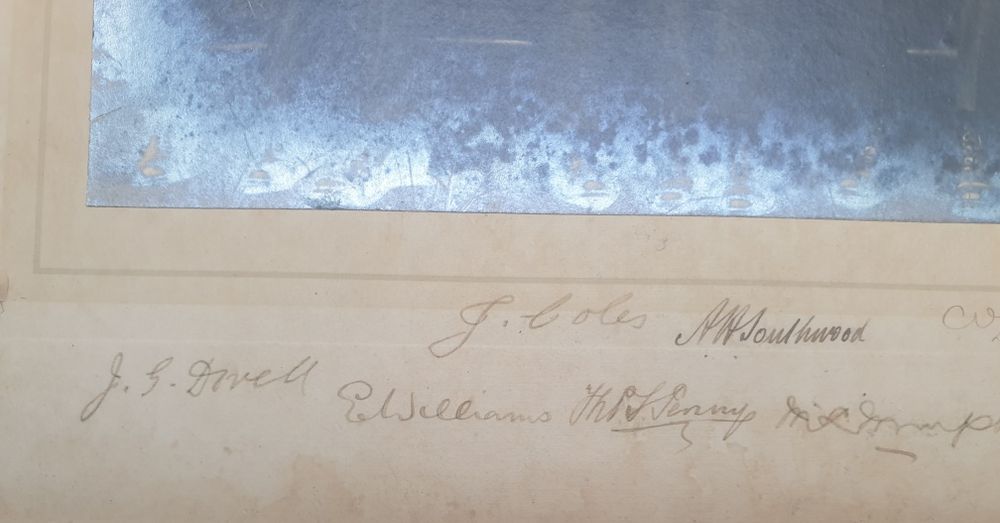 J. Coles AW Southwood
J. G. Dovell
E Williams Thos S. Penny